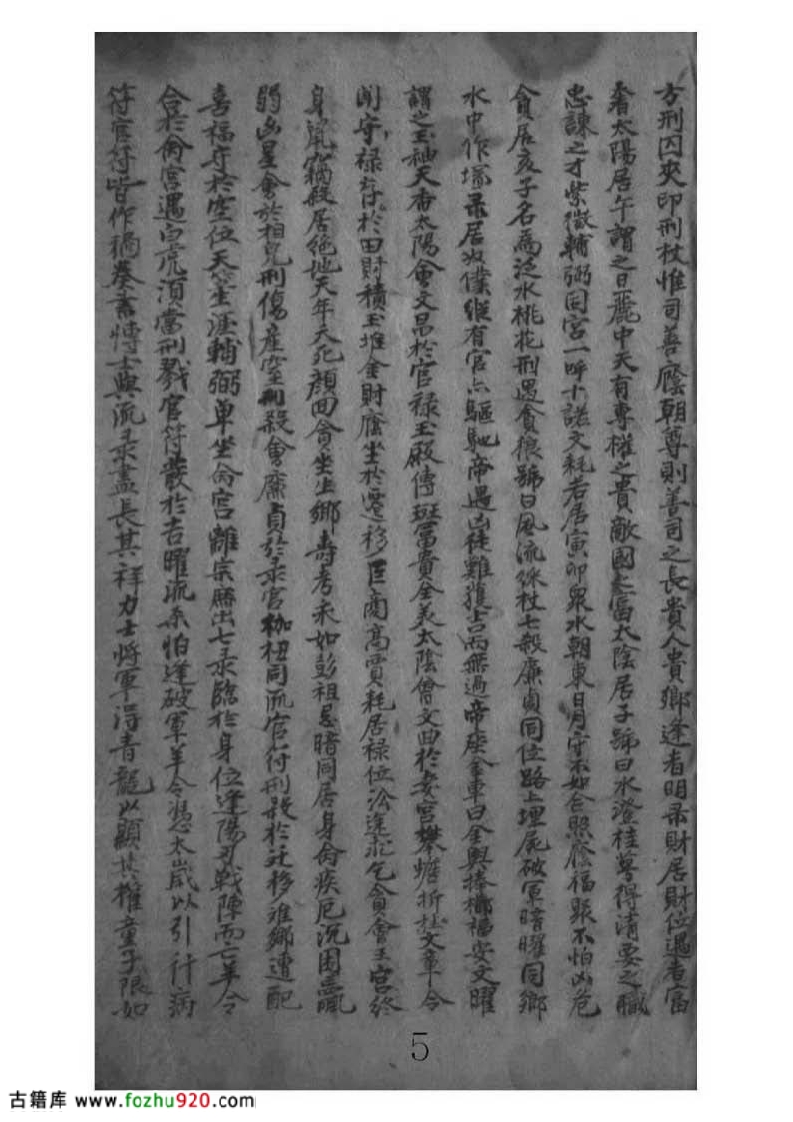 方刑囚夾印刑杖惟司善廕朝尊則善司之長貴人貴鄉逢者明录財居財位遇者富
奢太陽居午謂之日麗中天有專權之貴敵國之富太陰居子號曰水澄桂萼得清要之職
忠諫之才紫微輔弼同宮一呼十諾文耗若居寅卯眾水朝東日月守不如合照廕福聚不怕凶危
貪居亥子名為泛水桃花刑遇貪狼號曰風流綵杖七殺廉貞同位路上埋屍破軍暗曜同鄉
水中作塚录居奴僕縱有官亦驅馳帝遇凶徒雖獲吉而無過帝座金車曰金輿捧櫛福安文曜
謂之玉袖天香太陽會文昌於官祿玉殿傳班富貴全美太陰會文曲於妻宮攀蟾折桂文章令
聞守祿存於田財積玉堆金財廕坐於遷移巨商高賈耗居祿位沿途求乞貪會王宮終
身鼠竊殺居絕地天年夭死顏回貪坐生鄉壽考永如彭祖忌暗同居身命疾厄沉困尪羸
弱凶星會於相皃刑傷產室刑殺會廉貞於录宮枷杻同流官符刑殺於迁移離鄉遭配
喜福守於空位天竺生涯輔弼單坐命宮離宗庶出七录臨於身位逢陽刃戰陳而亡羊令
合於命宮遇白虎須當刑戮官符發於吉曜流杀怕逢破軍羊令憑太歲以引行病
符官符皆作禍奏書博士與流录盡長其祥力士將軍得青龍以顯其權童子限如
5
古籍库 www.fozhu920.com